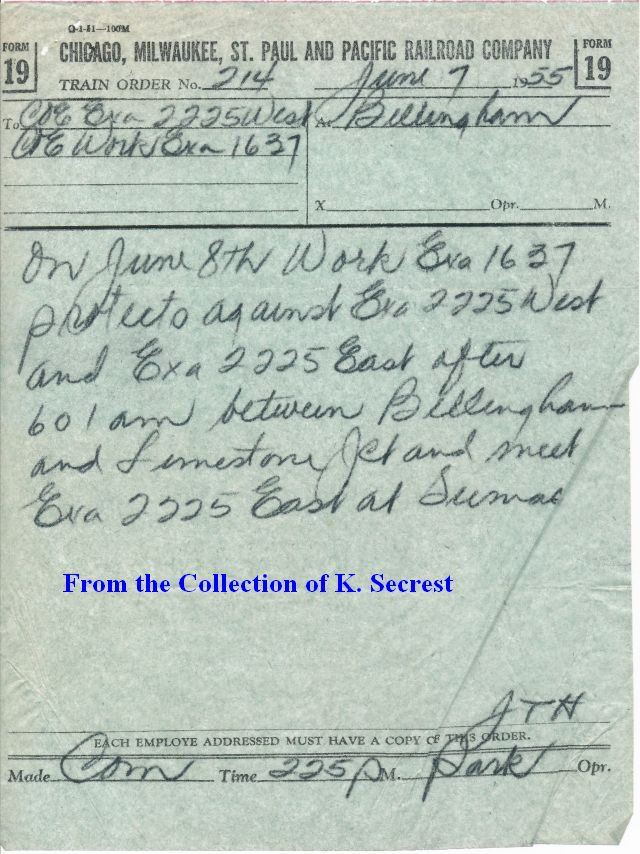 O-1-51—100M
FORM 19
CHICAGO, MILWAUKEE, ST. PAUL AND PACIFIC RAILROAD COMPANY
FORM 19
TRAIN ORDER No. 214 June 7 1955
To C&E Exa 2225 West At Bellingham
C&E Work Exa 1637
X Opr. M.
On June 8th Work Exa 1637
protects against Exa 2225 West
and Exa 2225 East after
601 am between Bellingham
and Limestone Jct and meet
Exa 2225 East at Sumas
From the Collection of K. Secrest
JTH
EACH EMPLOYE ADDRESSED MUST HAVE A COPY OF THIS ORDER.
Made Com Time 225 P M. Park Opr.